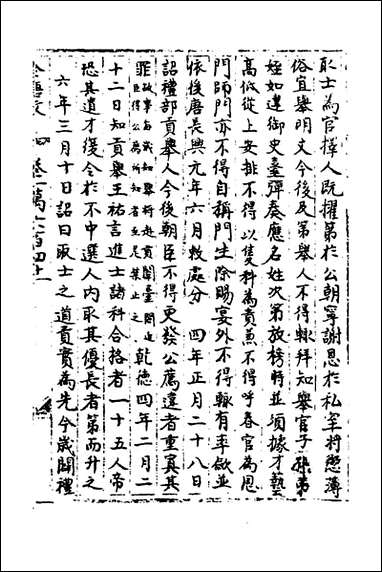 取士為官擇人既擢第於公朝寧謝恩於私室将懲薄
俗宜舉明文今後及第舉人不得輒拜知舉官子孫弟
姪如違御史臺彈奏應名姓次第放榜時並須據才藝
高低從上安排不得以隻科為貴兼不得呼春官為恩
門師門亦不得自稱門生除賜宴外不得輒有率斂並
依後唐長興元年六月敕處分 四年正月二十八日
詔禮部貢舉人今後朝臣不得更發公薦違者重寘其
罪故事每歲知舉将赴貢闈臺閣近臣得公薦所知者至是禁止之乾德四年二月二
十二日知貢舉王祐言進士諸科合格者一十五人帝
恐其遺才復令於不中選人内取其優長者第而升之
六年三月十日詔曰取士之道責實為先今歲開禮
全唐文 卷一萬六百四十